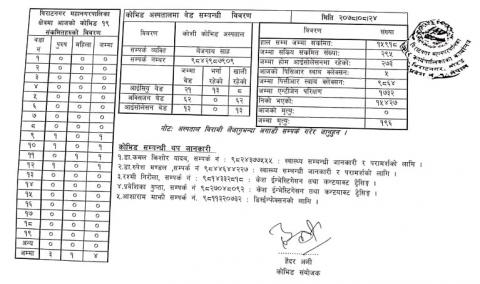 विराटनगर महानगरपालिका
क्षेत्रमा आजको कोभिड १९
संक्रमितहरुको विवरण
वडा नं पुरुष महिला जम्मा
१ ० ० ०
२ ० ० ०
३ ० ० ०
४ ० ० ०
५ ० ० ०
६ ० ० ०
७ ० ० ०
८ ० ० ०
९ १ ० १
१० १ ० १
११ ० १ १
१२ ० ० ०
१३ ० ० ०
१४ ० ० ०
१५ ० ० ०
१६ ० ० ०
१७ ० ० ०
१८ ० ० ०
१९ ० ० ०
अन्य ० ० ०
जम्मा ३ १ ४
कोभिड अस्पतालमा बेड सम्वन्धी विवरण
विवरण कोशी कोभिड अस्पताल
सम्पर्क व्यक्ति बेजनाथ साह
सम्पर्क नम्बर ९८४२९८७९०९
जम्मा बेड भर्ना रहेको खाली रहेको
आईसियु बेड २१ १३ ८
अक्सिजन बेड ६२ ० ६२
आइसोलेसन बेड १३ ० १३
मिति २०७८।०८।२४
हाल सम्म जम्मा संक्रमित: १५९१८
जम्मा सक्रिय संक्रमित संख्या: २९५
जम्मा होम आईसोलेसनमा रहेको २७३
आजको पिसिआर स्वाब कलेक्सन: ५
जम्मा पिसीआर स्वाब कलेक्सन: ९८६४
जम्मा एण्टीजेन परिक्षण १७३२
निको भएको: १५४२७
आजको मृत्यु: ०
जम्मा मृत्यु: १९६
नोट: अस्पताल बिरामी लैजानुभन्दा अगाडी सम्पर्क गरेर जानुहुन ।
कोभिड सम्वन्धी थप जानकारी
१.डा.कमल किशोर यादव, सम्पर्क नं : ९८२४३७७५५५ : स्वास्थ्य सम्वन्धी जानकारी र परामर्शको लागि ।
२.डा रुपेश मण्डल ,सम्पर्क नं ९८४४६४४२२७ : स्वास्थ्य सम्वन्धी जानकारी र परामर्शको लागि ।
३.रश्मी गिरीला, सम्पर्क नं : ९८१४३३२८१८ : केश ईन्भेष्टिगेसन तथा कन्ट्याक्ट ट्रेसिङ्ग ।
४.प्रवेशिका गुप्ता, सम्पर्क नं : ९८२७०४८०९२ : केश ईन्भेष्टिगेसन तथा कन्ट्याक्ट ट्रेसिङ्ग ।
५.आशाराम माझी सम्पर्क नं : ९८१९३२०७३२ : डिस्ईन्फेक्सनको लागि ।
हैदर अली
कोभिड संयोजक